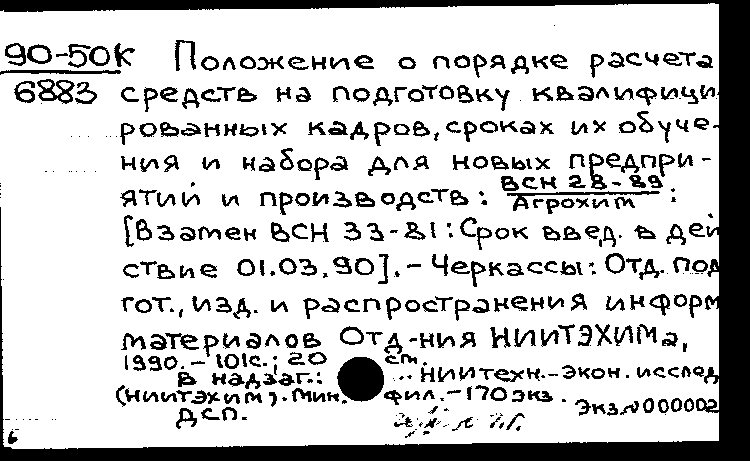 90-50К Положение о порядке расчета
6883 средств на подготовку квалифици
рованных кадров, сроках их обуче-
ния и набора для новых предпри-
ятий и производств: ВСН 28-89 :
Агрохим
[Взамен ВСН 33-81: Срок введ. в дей
ствие 01.03.90].- Черкассы: Отд. под
гот., изд. и распространения информ
материалов Отд-ния НИИТЭХИМа,
1990.- 101с.; 20 см.
В надзаг.: ... НИИ техн.-экон. исслед
(НИИТЭХИМ). Мин. фил.- 170 экз.
ДСП. Экз.N 000002
б